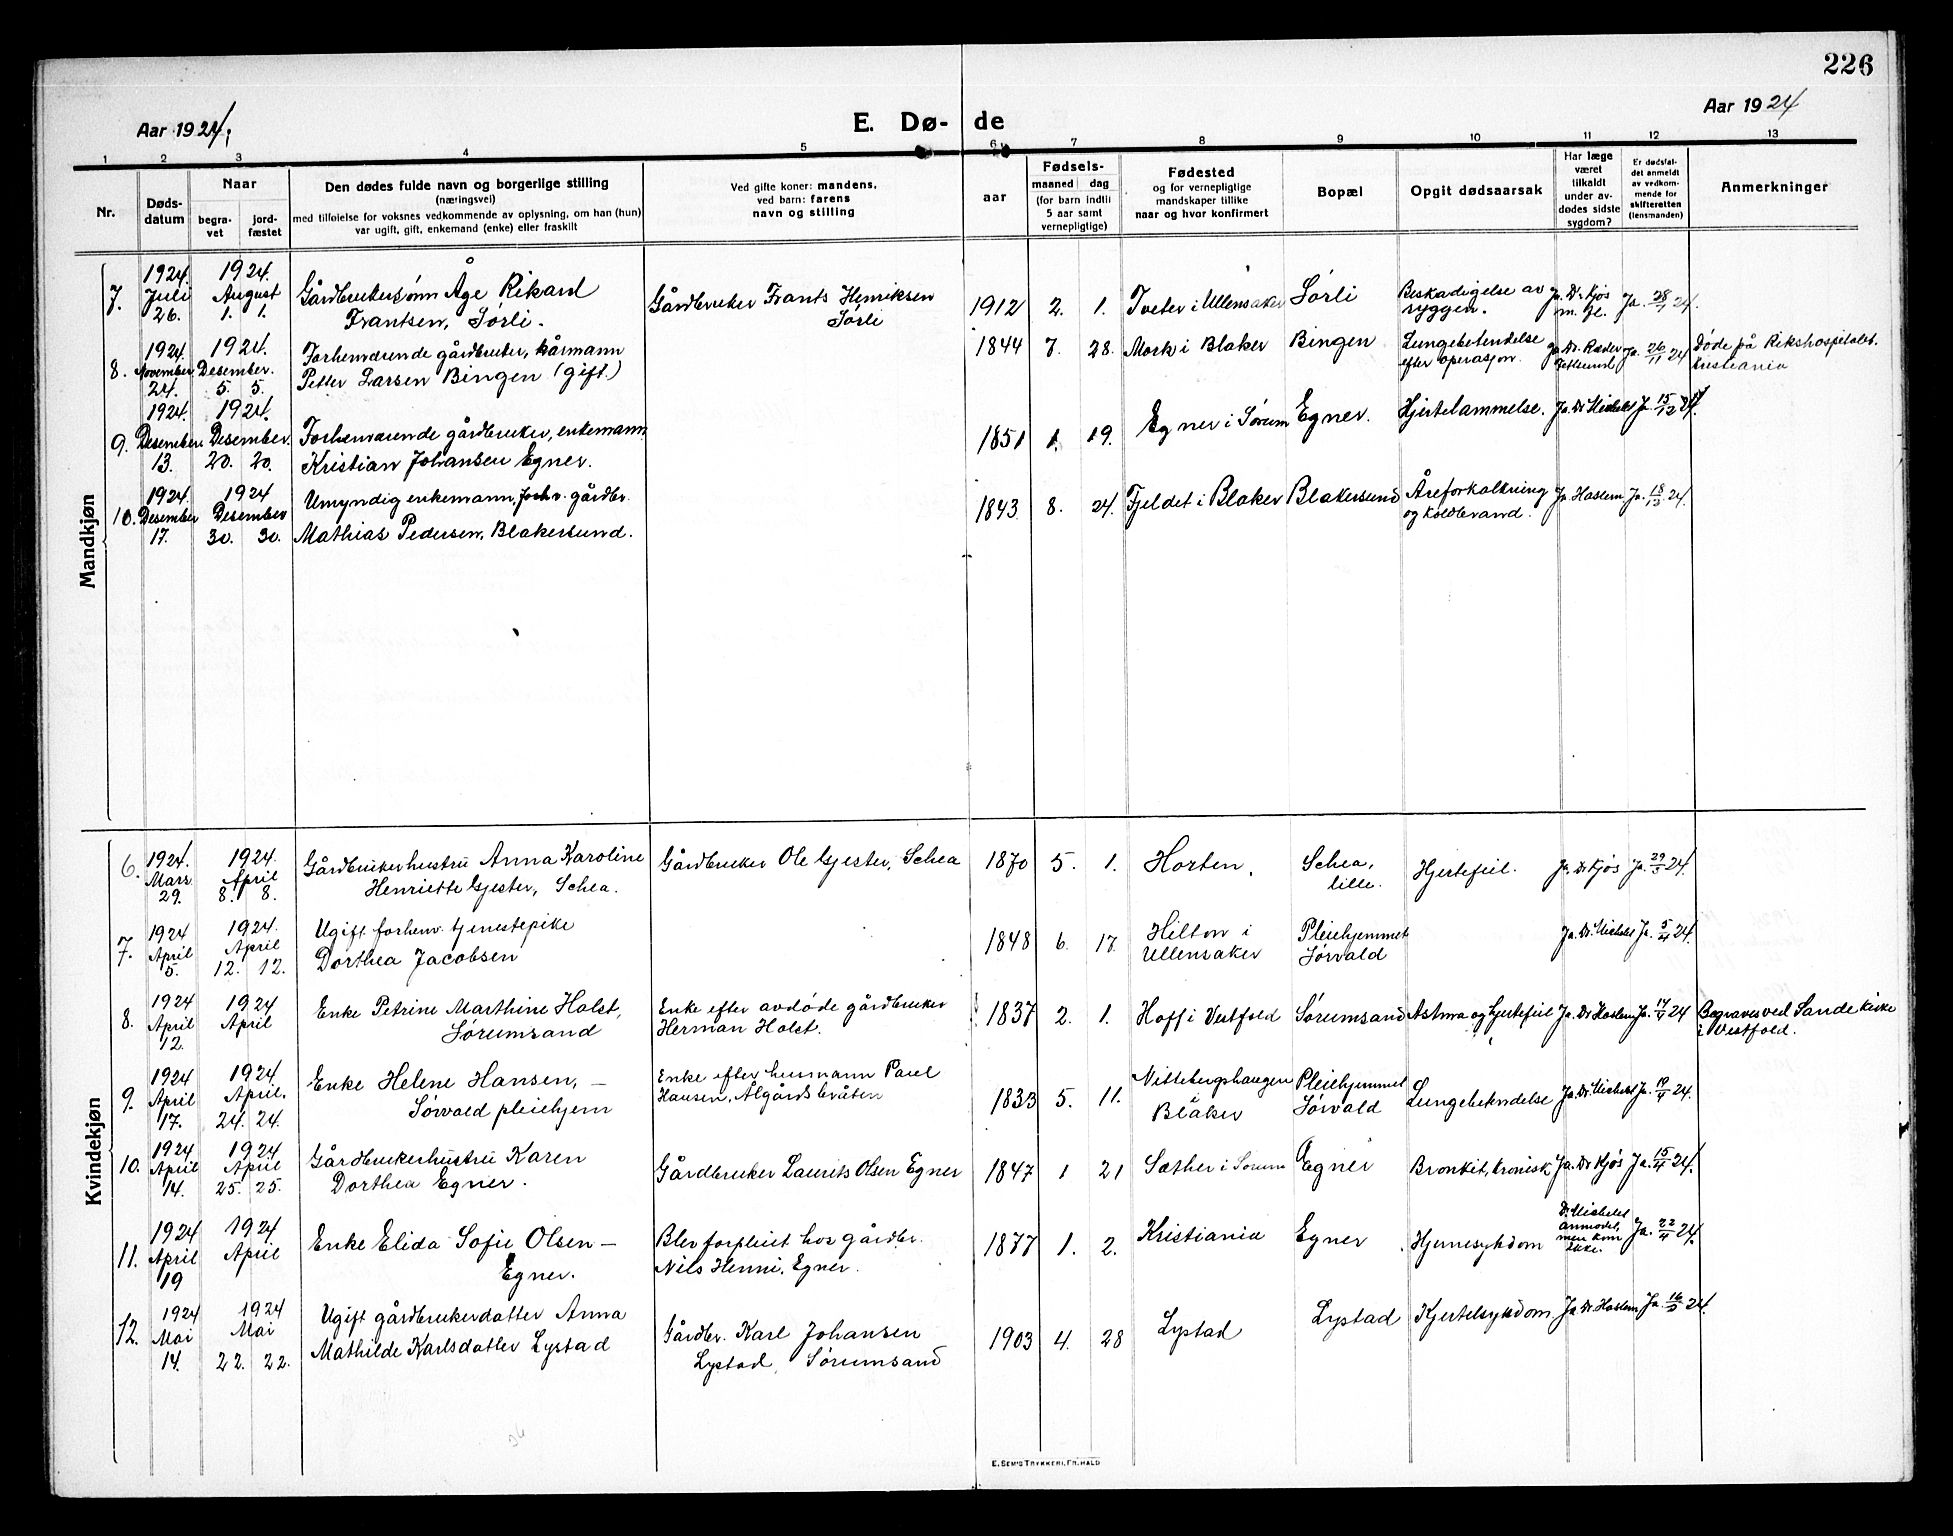 226
Aar 1924.
E. Dø- de
Aar 1924
1 2 3 4 5 6 7 8 9 10 11 12 13
Nr.
Døds-
datum
Naar
begra-
vet
jord-
fæstet
Den dødes fulde navn og borgerlige stilling
(næringsvei)
med tilføielse for voksnes vedkommende av oplysning, om han (hun)
var ugift, gift, enkemand (enke) eller fraskilt
Ved gifte koner: mandens,
ved barn: farens
navn og stilling
aar
Fødsels-
maaned dag
(for barn indtil
5 aar samt
vernepligtige)
Fødested
og for vernepligtige
mandskaper tillike
naar og hvor konfirmert
Bopæl
Opgit dødsaarsak
Har læge
været
tilkaldt
under av-
dødes sidste
sygdom?
Er dødsfal-
det anmeldt
av vedkom-
mende for
skifteretten
(lensmanden)
Anmerkninger
Mandkjøn
7.
1924.
Juli
26.
1924.
August
1. 1.
Gårdbrukersønn Åge Rikard
Frantsen, Sørli.
Gårdbruker Frants Henriksen
Sørli
1912 2. 1.
Tveter i Ullensaker
Sørli
Beskadigelse av
ryggen.
Ja. Dr. Kjøs
Ja.
8.
1924
November
24.
1924.
Desember.
5. 5.
Forhenværende gårdbruker, kårmann
Petter Larsen Bingen (gift.)
1844 7. 28.
Mork i Blaker
Bingen
Lungebetendelse
efter operasjon.
Ja. Dr. Ræder
Fetsund
Ja. 26/11 24
Døde på Rikshospitalet.
Kristiania
9.
1924.
Desember
13.
1924.
Desember.
20. 20.
Forhenværende gårdbruker, enkemann,
Kristian Johansen Egner.
1851 1. 19.
Egner i Sørum
Egner.
Hjertelammelse.
Ja. Dr. Michelet
J. 15/12 24.
10.
1924.
Desember
17.
1924
Desember
30. 30.
Umyndig enkemann, forhv. gårdbr.
Mathias Pedersen, Blakersund.
1843 8. 24.
Fjeldet i Blaker
Blakersund
Åreforkalkning
og koldbrand.
Ja Haslem
Ja. 18/12 24.
Kvindekjøn
6.
1924.
Mars
29.
1924.
April
8. 8.
Gårdbrukerhustru Anna Karoline
Henriette Gjester, Schea.
Gårdbruker Ole Gjester, Schea
1870 5. 1.
Horten.
Schea,
lille.
Hjertefeil.
Ja. Dr. Kjøs
Ja. 29/3 24.
7.
1924
April
5.
1924.
April
12. 12.
Ugift forhenv. tjenestepike
Dorthea Jacobsen
1848 6. 17.
Hilton i
Ullensaker
Pleiehjemmet
Sørvald
Ja. Dr. Michelet
Ja. 5/4 24.
8.
1924
April
12.
1924
April
Enke Petrine Marthine Holst,
Sørumsand
Enke efter avdøde gårdbruker
Herman Holst.
1837 2. 1.
Hoff i Vestfold
Sørumsand
Astma og hjertefeil
Ja. Dr Haslem
Ja. 14/4 24
Begraves ved Sande kirke
i Vestfold.
9.
1924
April
17.
1924
April.
24. 24.
Enke Helene Hansen, –
Sørvald pleiehjem
Enke efter husmann Paul
Hansen, Ålgårdsbråten
1833 5. 11.
Nittebergshaugen
Blaker
Pleiehjemmet
Sørvald
Lungebetendelse
Ja. Dr. Michelet
Ja. 19/4 24.
10.
1924
April
14.
1924
April
25. 25.
Gårdbrukerhustru Karen
Dorthea Egner.
Gårdbruker Laurits Olsen Egner
1847 1 21
Sæther i Sørum
Egner
Bronkit, kronisk
Ja. Dr Kjøs
Ja. 15/4 24.
11.
1924
April
19
1924
April
Enke Elida Sofie Olsen –
Egner.
Blev forpleiet hos gårdbr.
Nils Henni, Egner.
1877 1. 2.
Kristiania
Egner
Hjernesykdom
Dr. Michelet
anmodet,
men kom
ikke.
Ja. 22/4 24.
12.
1924
Mai
14.
1924
Mai
22. 22.
Ugift gårdbrukerdatter Anna
Mathilde Karlsdatter Lystad
Gårdbr. Karl Johansen
Lystad, Sørumsand
1903 4. 28
Lystad
Lystad
Kjertelsykdom
Ja. Dr. Haslem
Ja. 16/5 24.
E. SEM'S TRYKKERI, FR.HALD